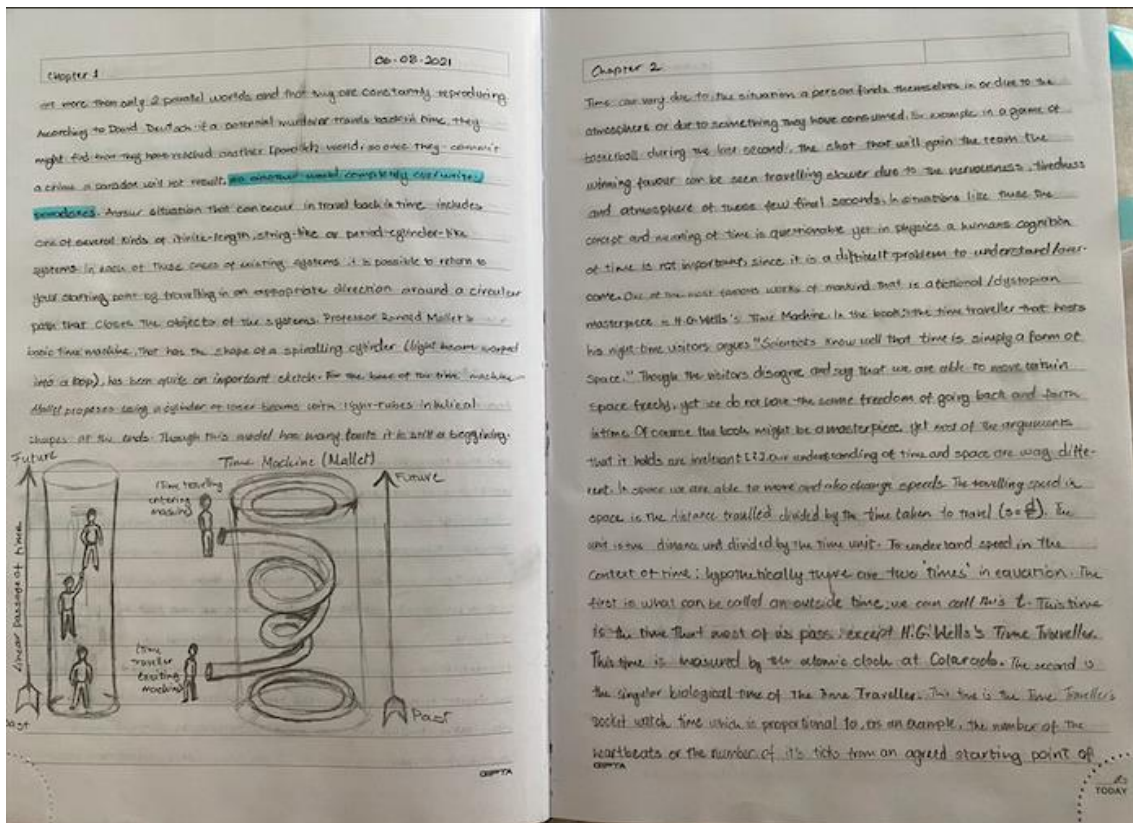 Chapter 1
06.08.2021
are more than only 2 parallel worlds and that they are constantly reproducing.
According to David Deutsch if a potential murderer travels back in time, they
might find that they have reached another (parallel) world, so once they commit
a crime a paradox will not result,
paradoxes. situation that can occur in travel back in time includes
one of several kinds of -length, string-like or period-cylinder-like
systems. In each of these cases of existing systems it is possible to return to
your starting point by travelling in an appropriate direction around a circular
path that closes the objects of the systems. Professor Ronald Mallet's
basic time machine, that has the shape of a spiralling cylinder (light beam warped
into a loop), has been quite an important sketch. For the base of the time machine
Mallet proposes using a cylinder of laser beams with light-tubes in helical
shapes at the ends. Though this model has many faults it is still a beggining.
Future
Linear passage of time
Past
Time Machine (Mallet)
(Time travelling
entering
machine)
(Time
traveler
exiting
machine)
Future
Past
Chapter 2
Time can vary due to the situation a person finds themselves in or due to the
atmosphere or due to something they have consumed. For example in a game of
basketball during the last second, the shot that will gain the team the
winning favour can be seen travelling slower due to the nervousness, tiredness
and atmosphere of these few final seconds. In situations like these the
concept and meaning of time is questionable yet in physics a humans cognition
of time is not important, since it is a difficult problem to understand/over-
come. One of the most famous works of mankind that is a fictional/dystopian
masterpiece is H.G. Wells's Time Machine. In the book, the time traveller that hosts
his night-time visitors argues "Scientists know well that time is simply a form of
space." Though the visitors disagree and say that we are able to move certain
space freely, yet we do not have the same freedom of going back and forth
in time. Of course the book might be a masterpiece, yet most of the arguments
that it holds are irrelevant [2]. Our understanding of time and space are way diffe-
rent. In space we are able to move and also change speeds. The travelling speed in
space is the distance travelled divided by the time taken to travel (s=d/t). The
unit is the distance unit divided by the time unit. To understand speed in the
context of time: hypothetically there are two 'times' in equation. The
first is what can be called an outside time; we can call this t. This time
is the time that most of us pass, except H.G. Wells's Time Traveller.
This time is measured by the atomic clock at Colarado. The second is
the singular biological time of the Time Traveller. This time is the Time Traveller's
pocket watch time which is proportional to, as an example, the number of the
heartbeats or the number of it's ticks from an agreed starting point of
TODAY